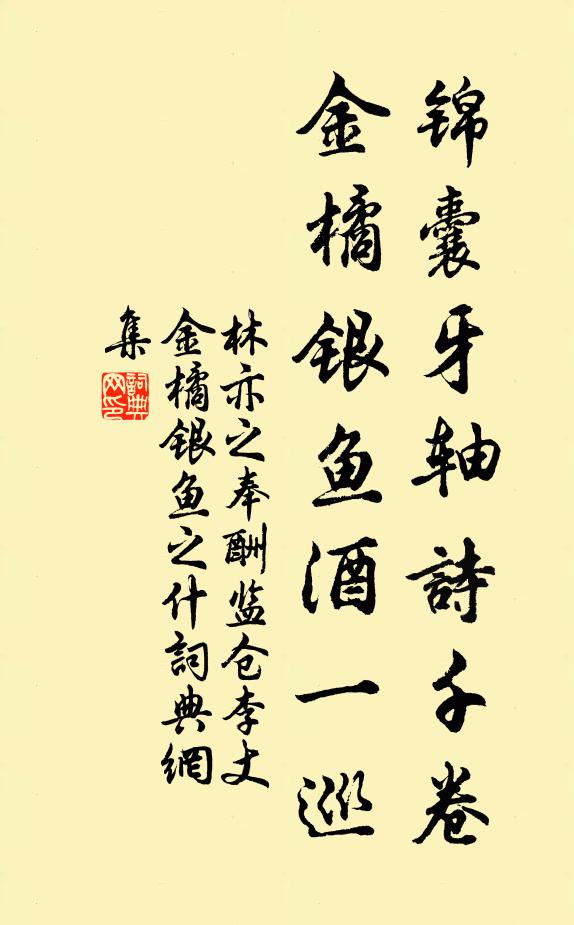 锦囊牙轴詩千卷
金橘银鱼酒一巡
林亦之奉酬监仓李丈
金橘银鱼之什詞典網
集
詞典
网印